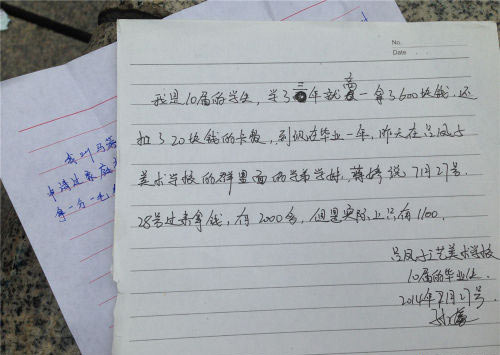 No.
Date
我是10届的学生，学了三年就高一拿了600块钱.还
扣了20块钱的卡费，到现在毕业一年，昨天在吕凤子
美术学校的群里面的学弟学妹，蒋婷说7月27号.
28号过来拿钱，有2000多，但是实际上只有1100.
吕凤子工艺美术学校
10届的毕业生.
2014年7月27号
我叫马
申请过家庭
拿一分一毛